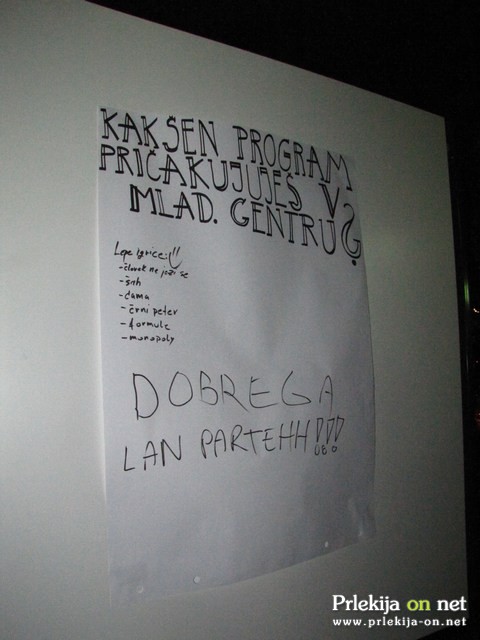 KAKŠEN PROGRAM
PRIČAKUJUJEŠ V
MLAD. CENTRU?
Lepe igrice:!!
-človek ne jezi se
-šah
-dama
-črni peter
-formule
-monopoly
DOBREGA
LAN PARTEHH!!!
Prlekija on net
www.prlekija-on.net